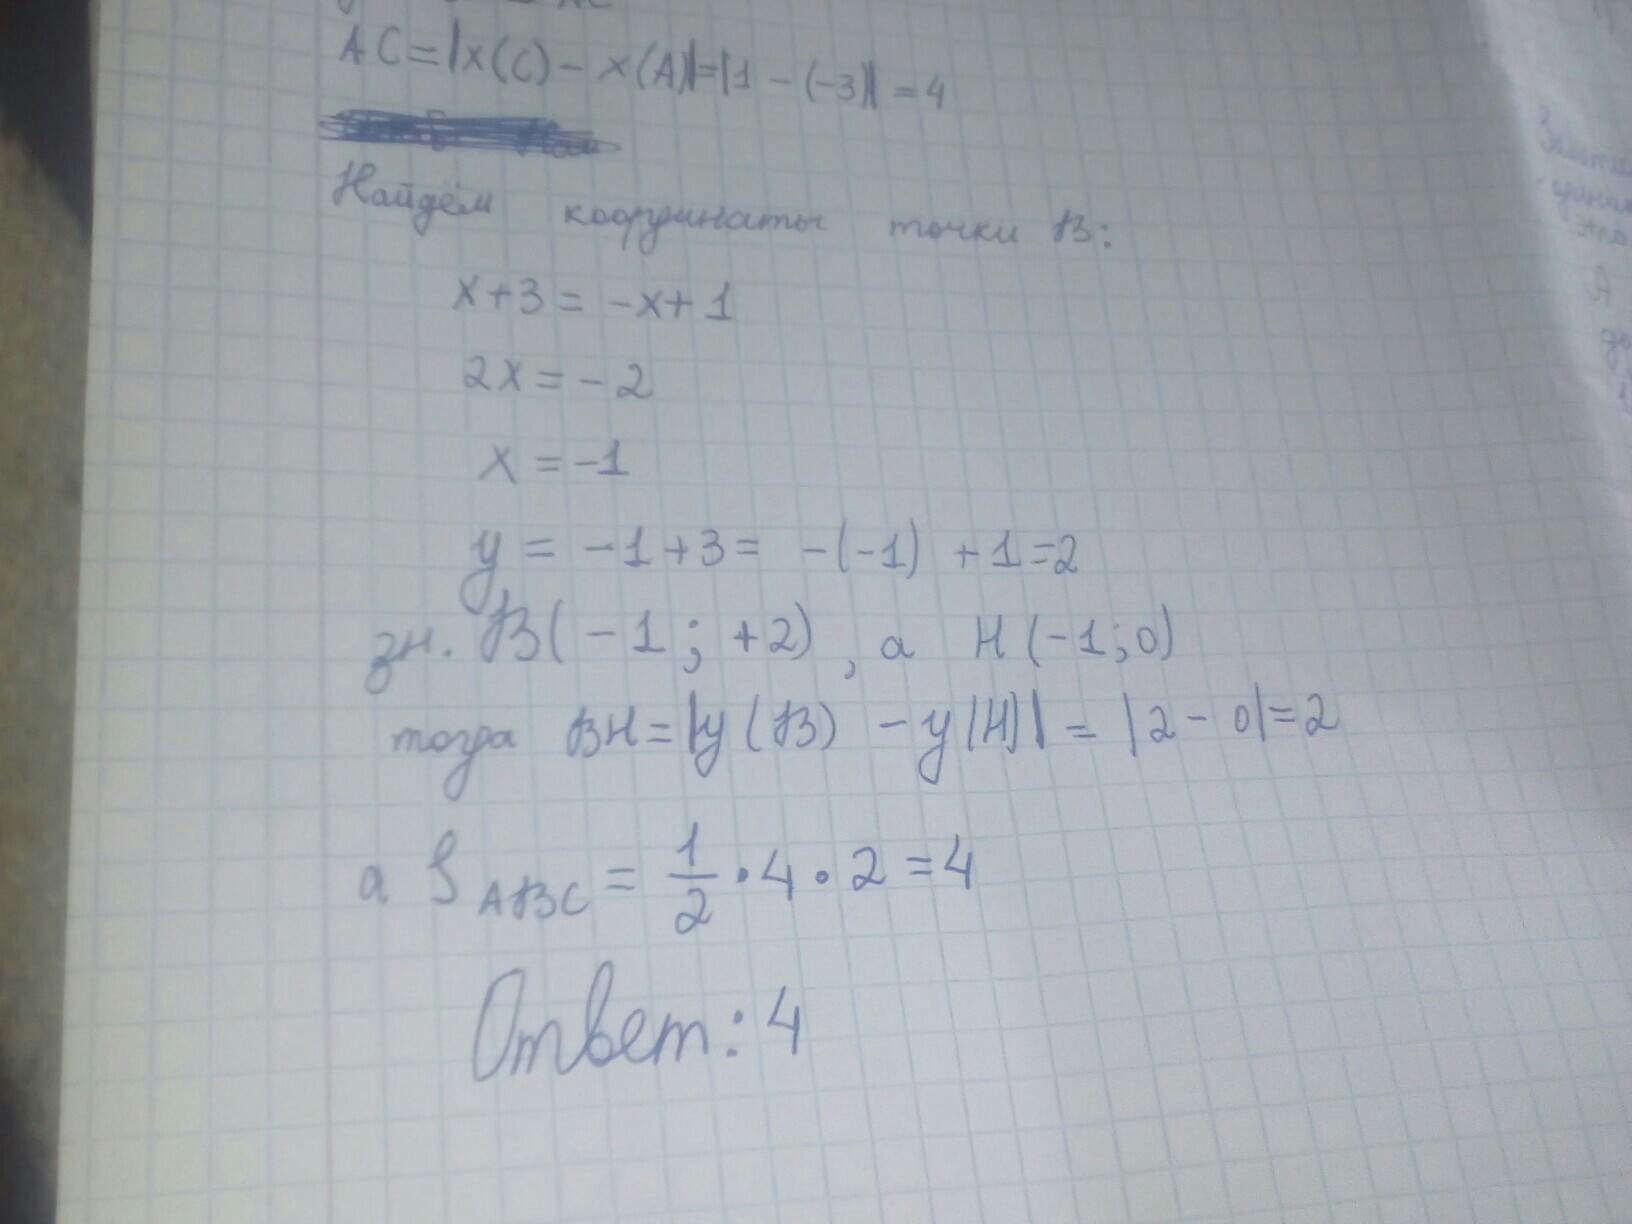 AC=|x(C)-x(A)|=|1-(-3)|=4
Найдём координаты точки B:
x+3=-x+1
2x=-2
x=-1
y=-1+3=-(-1)+1=2
зн. B(-1;+2), а H(-1;0)
тогда BH=|y(B)-y(H)|=|2-0|=2
а S ABC = 1/2·4·2=4
Ответ: 4